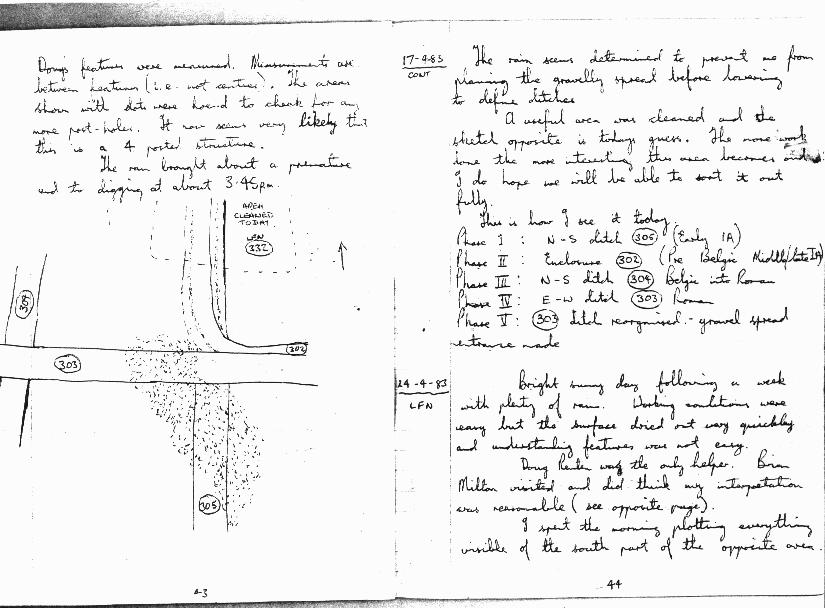 Doug's features were measured. Measurements are
between features (i.e. not centres). The areas
shown with dots were hoed to check for any
more post-holes. It now seems very likely that
this is a 4 posted structure.
The rain brought about a premature
end to digging at about 3.45pm.
AREA
CLEANED
TODAY
LFN
332
304
302
303
305
43
17-4-83
CONT
The rain seems determined to prevent me from
planing the gravelly spread before lowering
to define ditches
A useful area was cleaned and the
sketch opposite is todays guess. The more work
done the more interesting this area becomes and
I do hope we will be able to sort it out
fully.
This is how I see it today.
Phase I : N-S ditch 305 (Early IA)
Phase II : Enclosure 302 (Pre Belgic Middle/late IA)
Phase III : N-S ditch 304 Belgic into Roman
Phase IV : E-W ditch 303 Roman
Phase V : 303 ditch reorganised - gravel spread
entrance made
24-4-83
LFN
Bright sunny day following a week
with plenty of rain. Working conditions were
easy but the surface dried out very quickley
and understanding features was not easy.
Doug was the only helper. Brian
Milton visited and did think my interpretation
was reasonable (see opposite page).
I spent the morning plotting everything
visible of the south part of the opposite area.
44